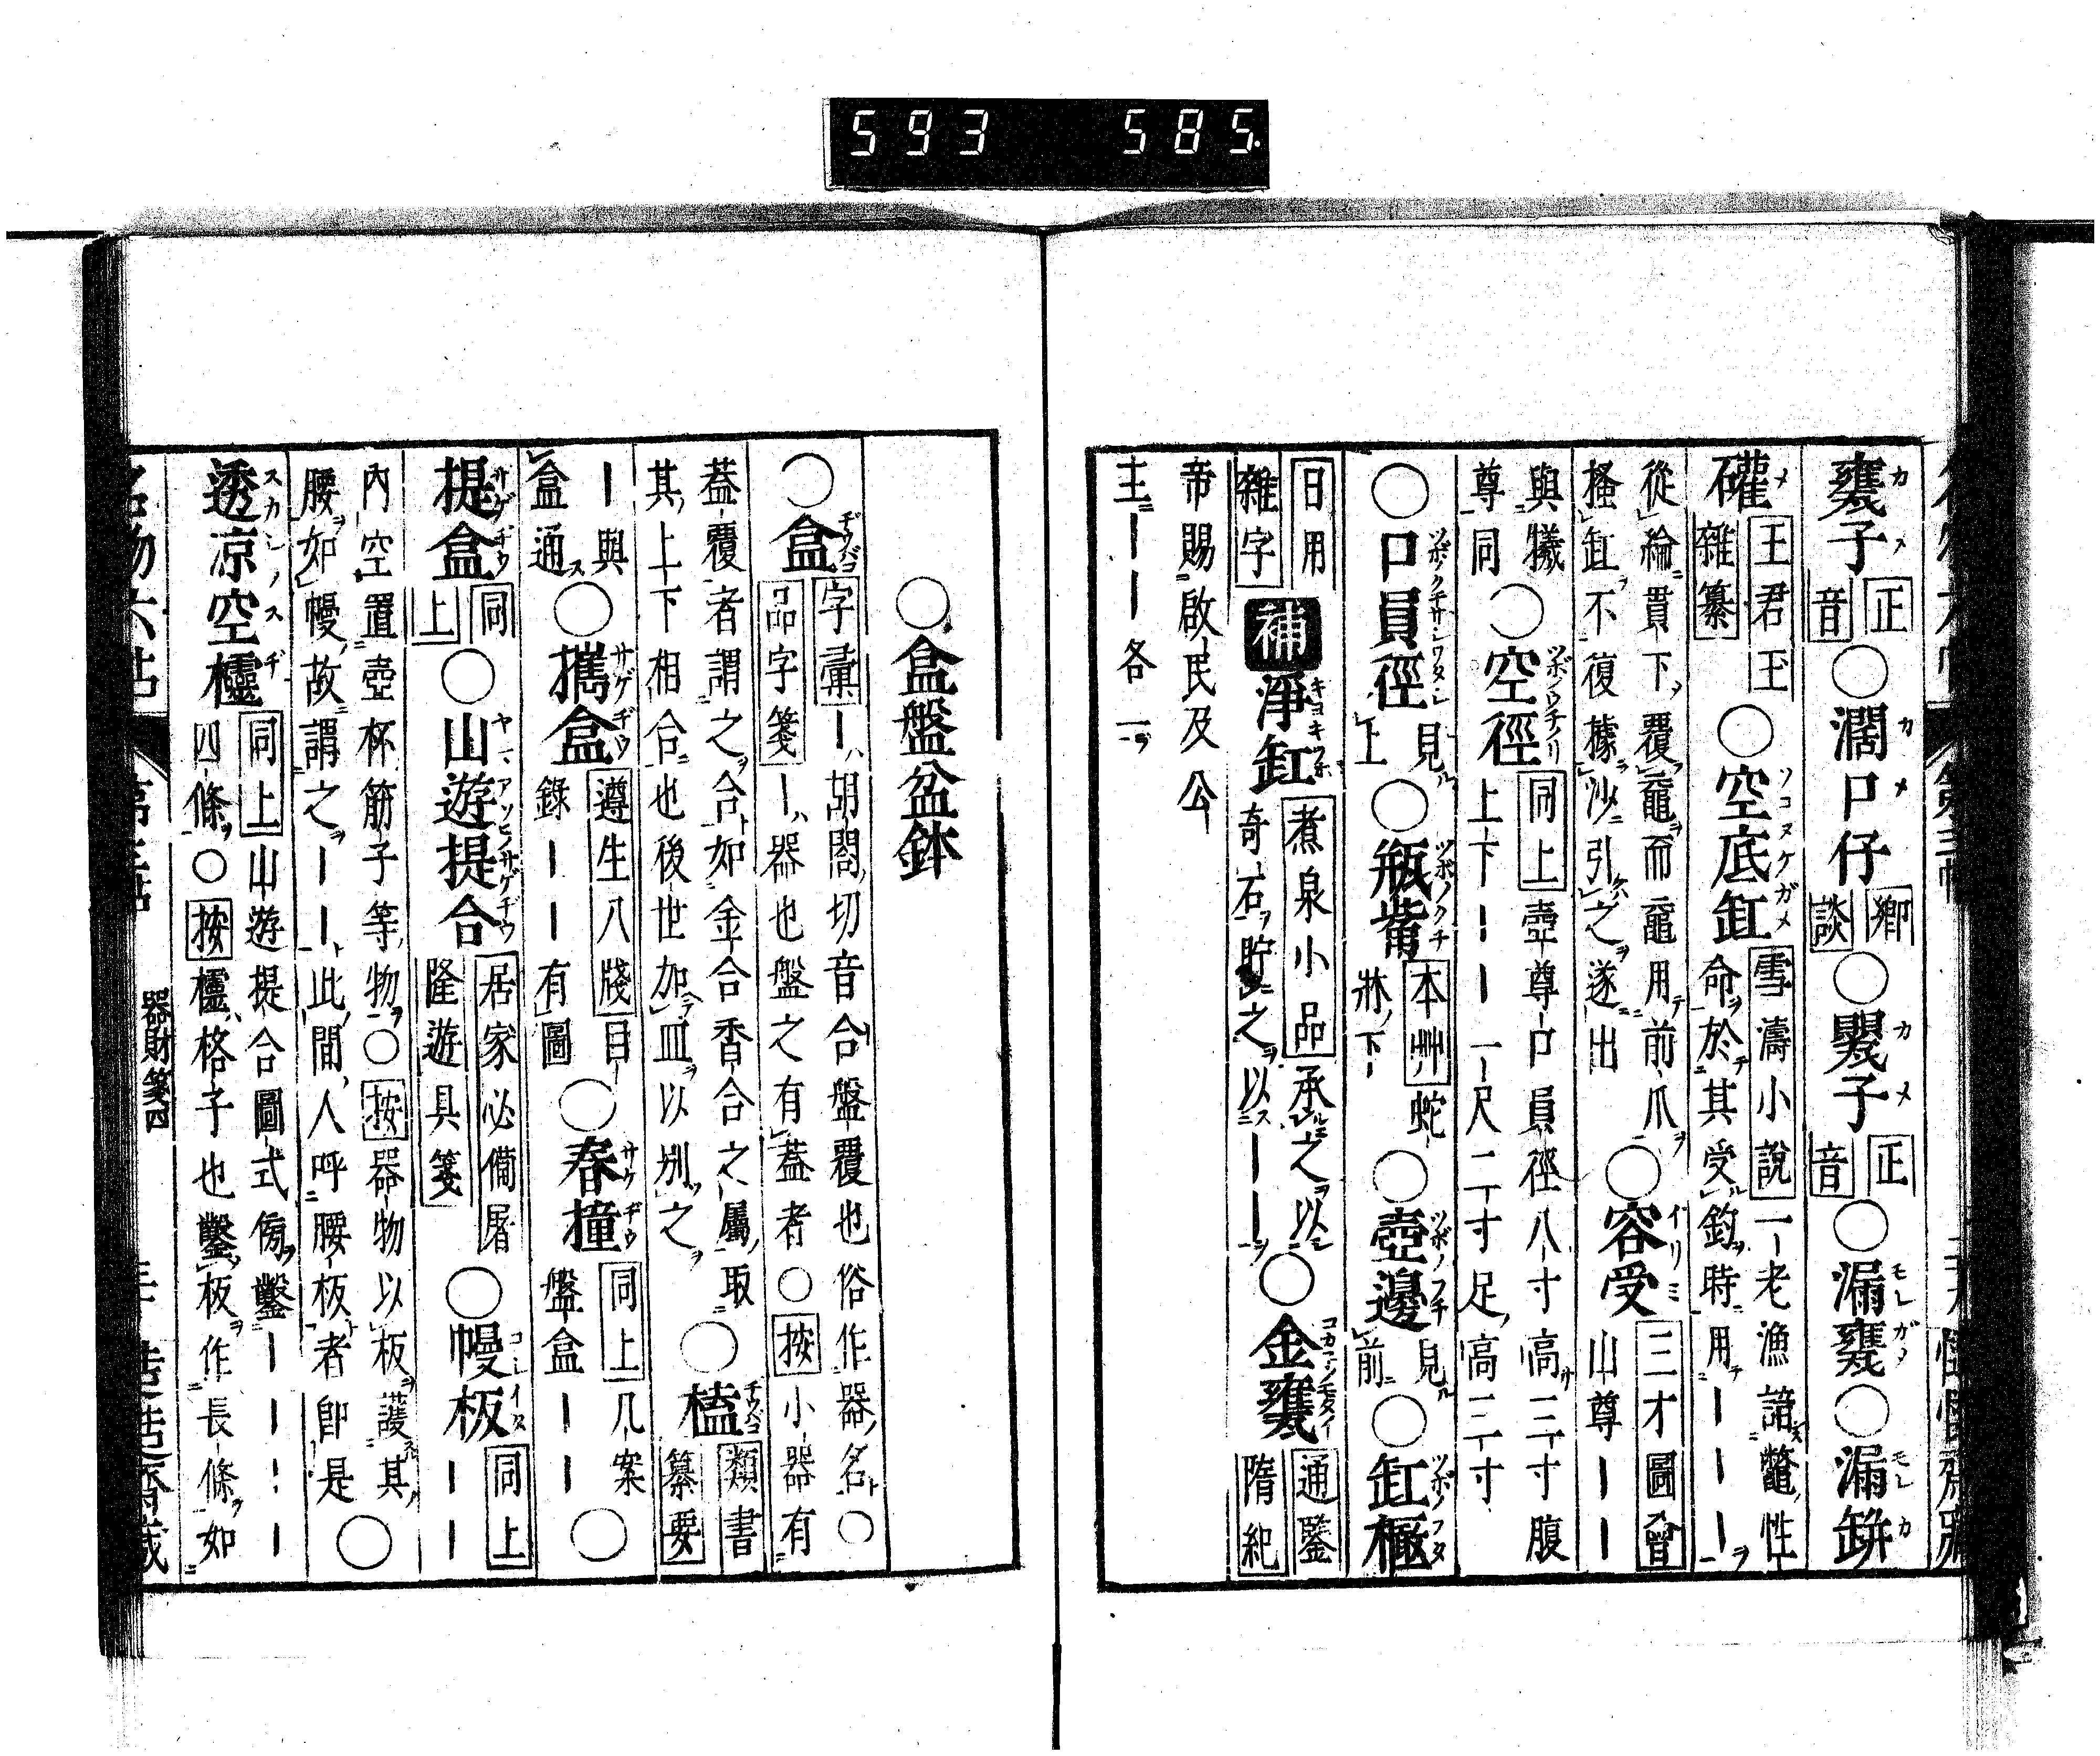 593 585
甕子 正音 ○濶口仔 鄉談 ○甖子 正音 ○漏甕 ○漏缾
礶 王君玉雜纂 ○空底缸 雪濤小說 一老漁諳鼈性
命於其受釣時用｜｜｜
從綸貫下覆竈而竈用前爪
搔缸不復據沙引之遂出 ○容受 三才圖會 山尊｜｜
與犧尊同 ○空徑 同上 壺尊口員徑八寸高三寸腹
上下｜｜一尺二寸足高二寸
○口員徑 見上 ○瓶嘴 本艸 蛇牀下 ○壺邊 見前 ○缸極
日用雜字 補 淨缸 煮泉小品 承之以
奇石貯之以｜｜ ○金甕 通鑒隋紀
帝賜啟民及公
主｜｜各一
○盒盤盆鉢
○盒 字彙 ｜胡閤切音合盤覆也俗作器名○
品字箋 ｜器也盤之有蓋者○按小器有
蓋覆者謂之合如金合香合之屬取
其上下相合也後世加皿以別之 ○榼 類書纂要
｜與盒通 ○攜盒 遵生八牋 目錄｜｜有圖 ○春撞 同上 几案盤盒｜｜ ○
提盒 同上 ○山遊提合 居家必備屠隆遊具箋 ○幔板 同上 ｜｜
內空置壺杯筋子等物○按器物以板護其
腰如幔故謂之｜｜此間人呼腰板者卽是 ○
透凉空櫺 同上 山遊提合圖式傍鑿｜｜｜｜
四條○按櫺格子也鑿板作長條如
名物六帖 器財箋四